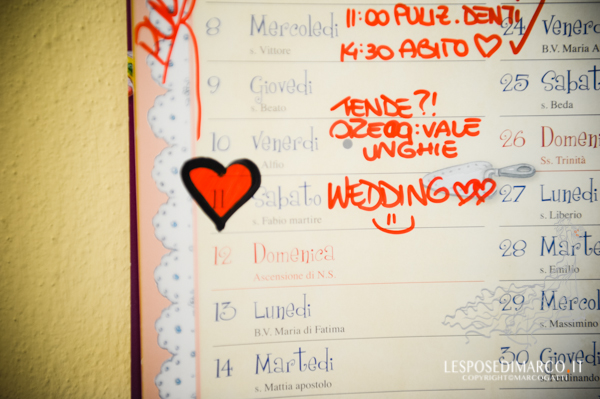 8 Mercoledì
s. Vittore
11:00 PULIZ. DENTI
14:30 ABITO
9 Giovedì
s. Beato
TENDE?!
10 Venerdì
UNGHIE
11 Sabato
s. Fabio martire
WEDDING
12 Domenica
Ascensione di N.S.
13 Lunedì
B.V. Maria di Fatima
14 Martedì
s. Mattia apostolo
24 Venerd
B.V. Maria A
25 Sabat
s. Beda
26 Domeni
Ss. Trinità
27 Lunedì
s. Liberio
28 Marte
s. Emilio
29 Mercol
s. Massimino
30 Gioved
LESPOSEDIMARCO.IT